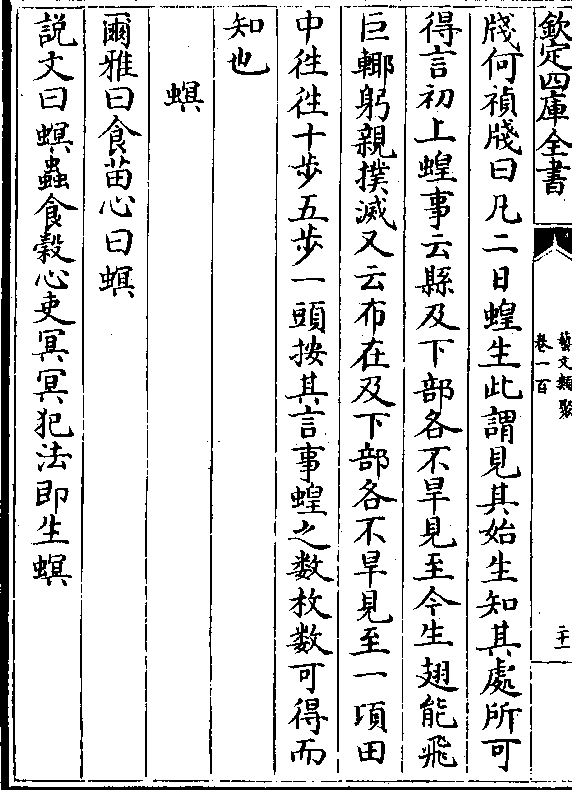 欽定四庫全書
藝文類聚
卷一百
二十
牋何禎牋曰凡二日蝗生此謂見其始生知其處所可
得言初上蝗事云縣及下部各不旱見至今生翅能飛
巨鄊躬親撲滅又云布在及下部各不旱見至一項田
中徃徃十步五步一頭按其言事蝗之數枚數可得而
知也
螟
爾雅曰食苗心曰螟
説文曰螟蟲食穀心吏冥冥犯法即生螟